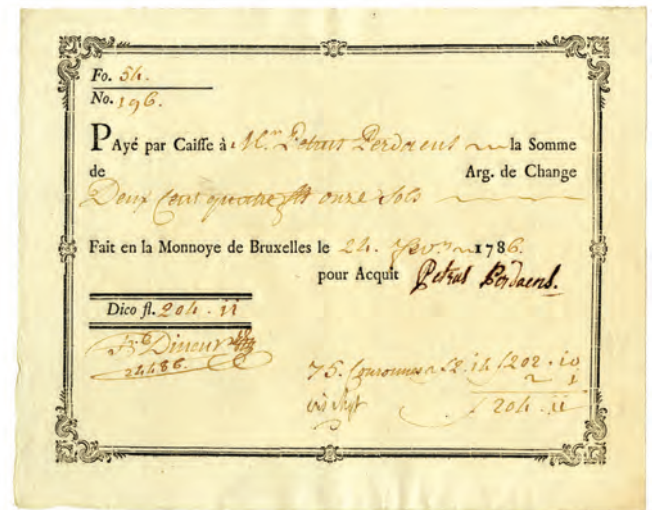 Fo. 54.
No. 196.
PAyé par Caisse à Mr. Petrus Perdaens la Somme
de Arg. de Change
Deux Cent quatre fls onze Sols
Fait en la Monnoye de Bruxelles le 24. 1786.
pour Acquit Petrus Perdaens.
Dico fl. 204 . 11
Dineur
24486.
75. Couronnes a f2.14 f202 . 10
2 1
f 204 . 11